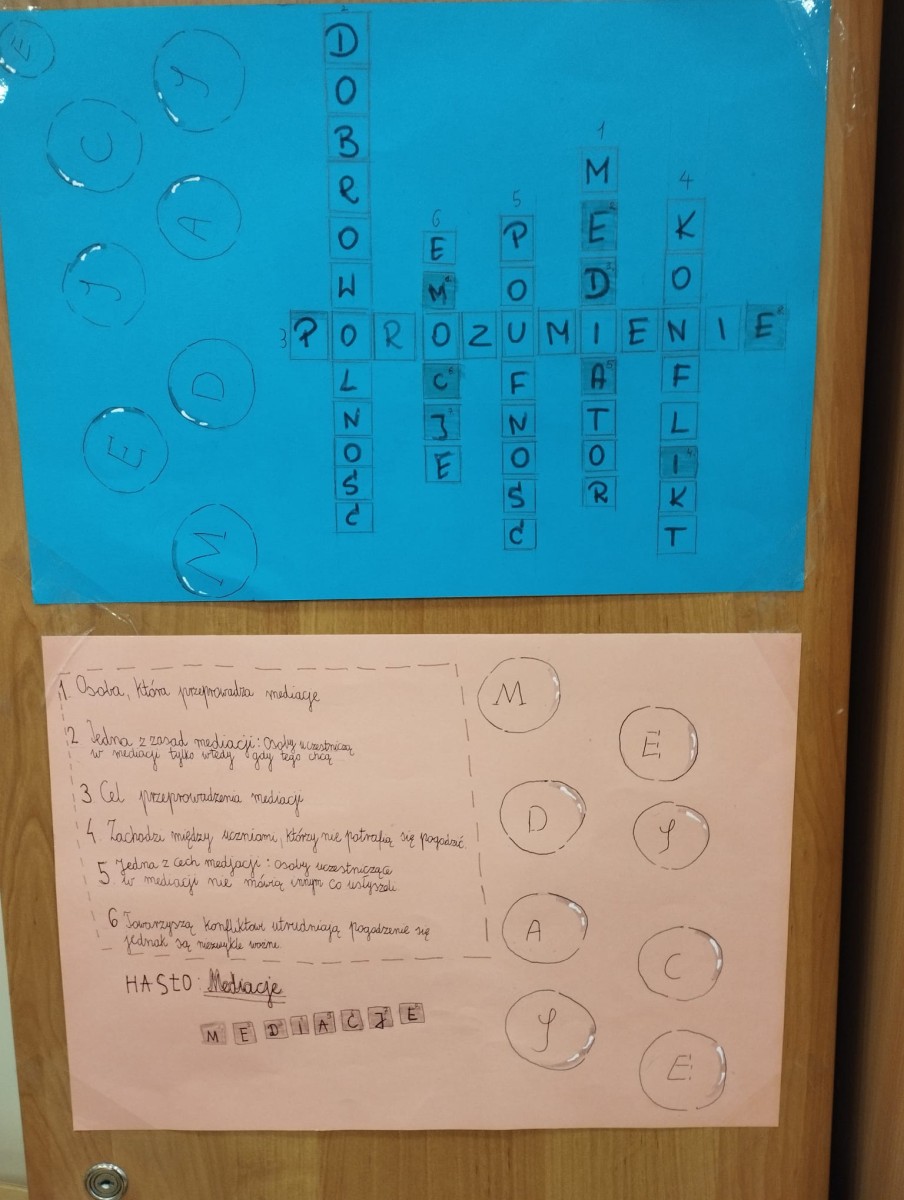 E
Y
C
A
J
D
E
M
2
DOBROWOLNOŚĆ
6
EMOCJE
5
POUFNOŚĆ
1
MEDIATOR
4
KONFLIKT
3 POROZUMIENIE
1. Osoba, która przeprowadza mediacje
2 Jedna z zasad mediacji: Osoby uczestniczą
w mediacji tylko wtedy gdy tego chcą
3 Cel przeprowadzenia mediacji
4. Zachodzi między uczniami, którzy nie potrafią się pogodzić.
5. Jedna z cech medjacji: osoby uczestniczące
w mediacji nie mówią innym co usłyszeli.
6 Towarzyszą konfliktowi utrudniają pogodzenie się
jednak są niezwykle ważne.
HASŁO: Mediacje
M E D I A C J E
M
E
D
J
A
C
J
E